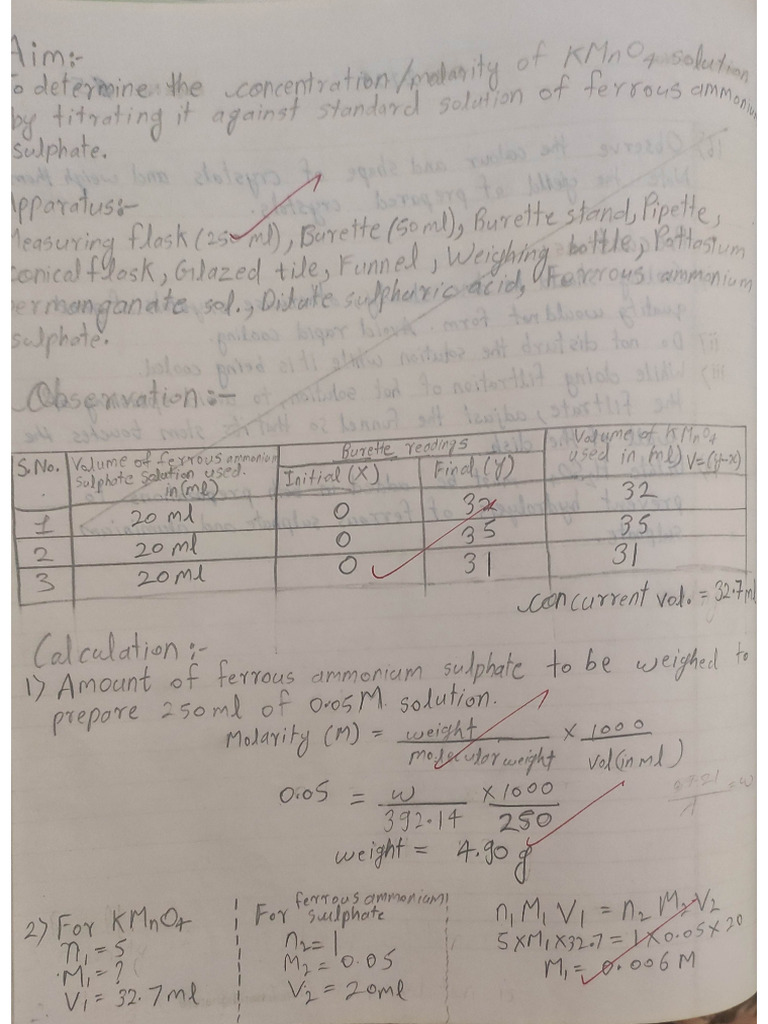 Aim:-
To determine the concentration/molarity of KMnO4 solution
by titrating it against standard solution of ferrous ammonium
sulphate.
Apparatus:-
Measuring flask (250 ml), Burette (50ml), Burette stand, Pipette,
conical flask, Glazed tile, Funnel, Weighing bottle, Pottasium
permanganate sol., Dilute sulphuric acid, Ferrous ammonium
sulphate.
Observation:-
S.No. Volume of ferrous ammonium sulphate solution used in (ml) Burette readings Volume of KMnO4 used in (ml) V=(y-x)
Initial (X) Final (Y)
1 20 ml 0 32 32
2 20 ml 0 35 35
3 20ml 0 31 31
concurrent vol. = 32.7ml
Calculation:-
1) Amount of ferrous ammonium sulphate to be weighed to
prepare 250ml of 0.05M solution.
Molarity (M) = weight / molecular weight × 1000 / vol (in ml)
0.05 = w / 392.14 × 1000 / 250
weight = 4.90 g
2) For KMnO4
n1 = 5
M1 = ?
V1 = 32.7 ml
For ferrous ammonium sulphate
n2 = 1
M2 = 0.05
V2 = 20ml
n1 M1 V1 = n2 M2 V2
5 × M1 × 32.7 = 1 × 0.05 × 20
M1 = 0.006 M